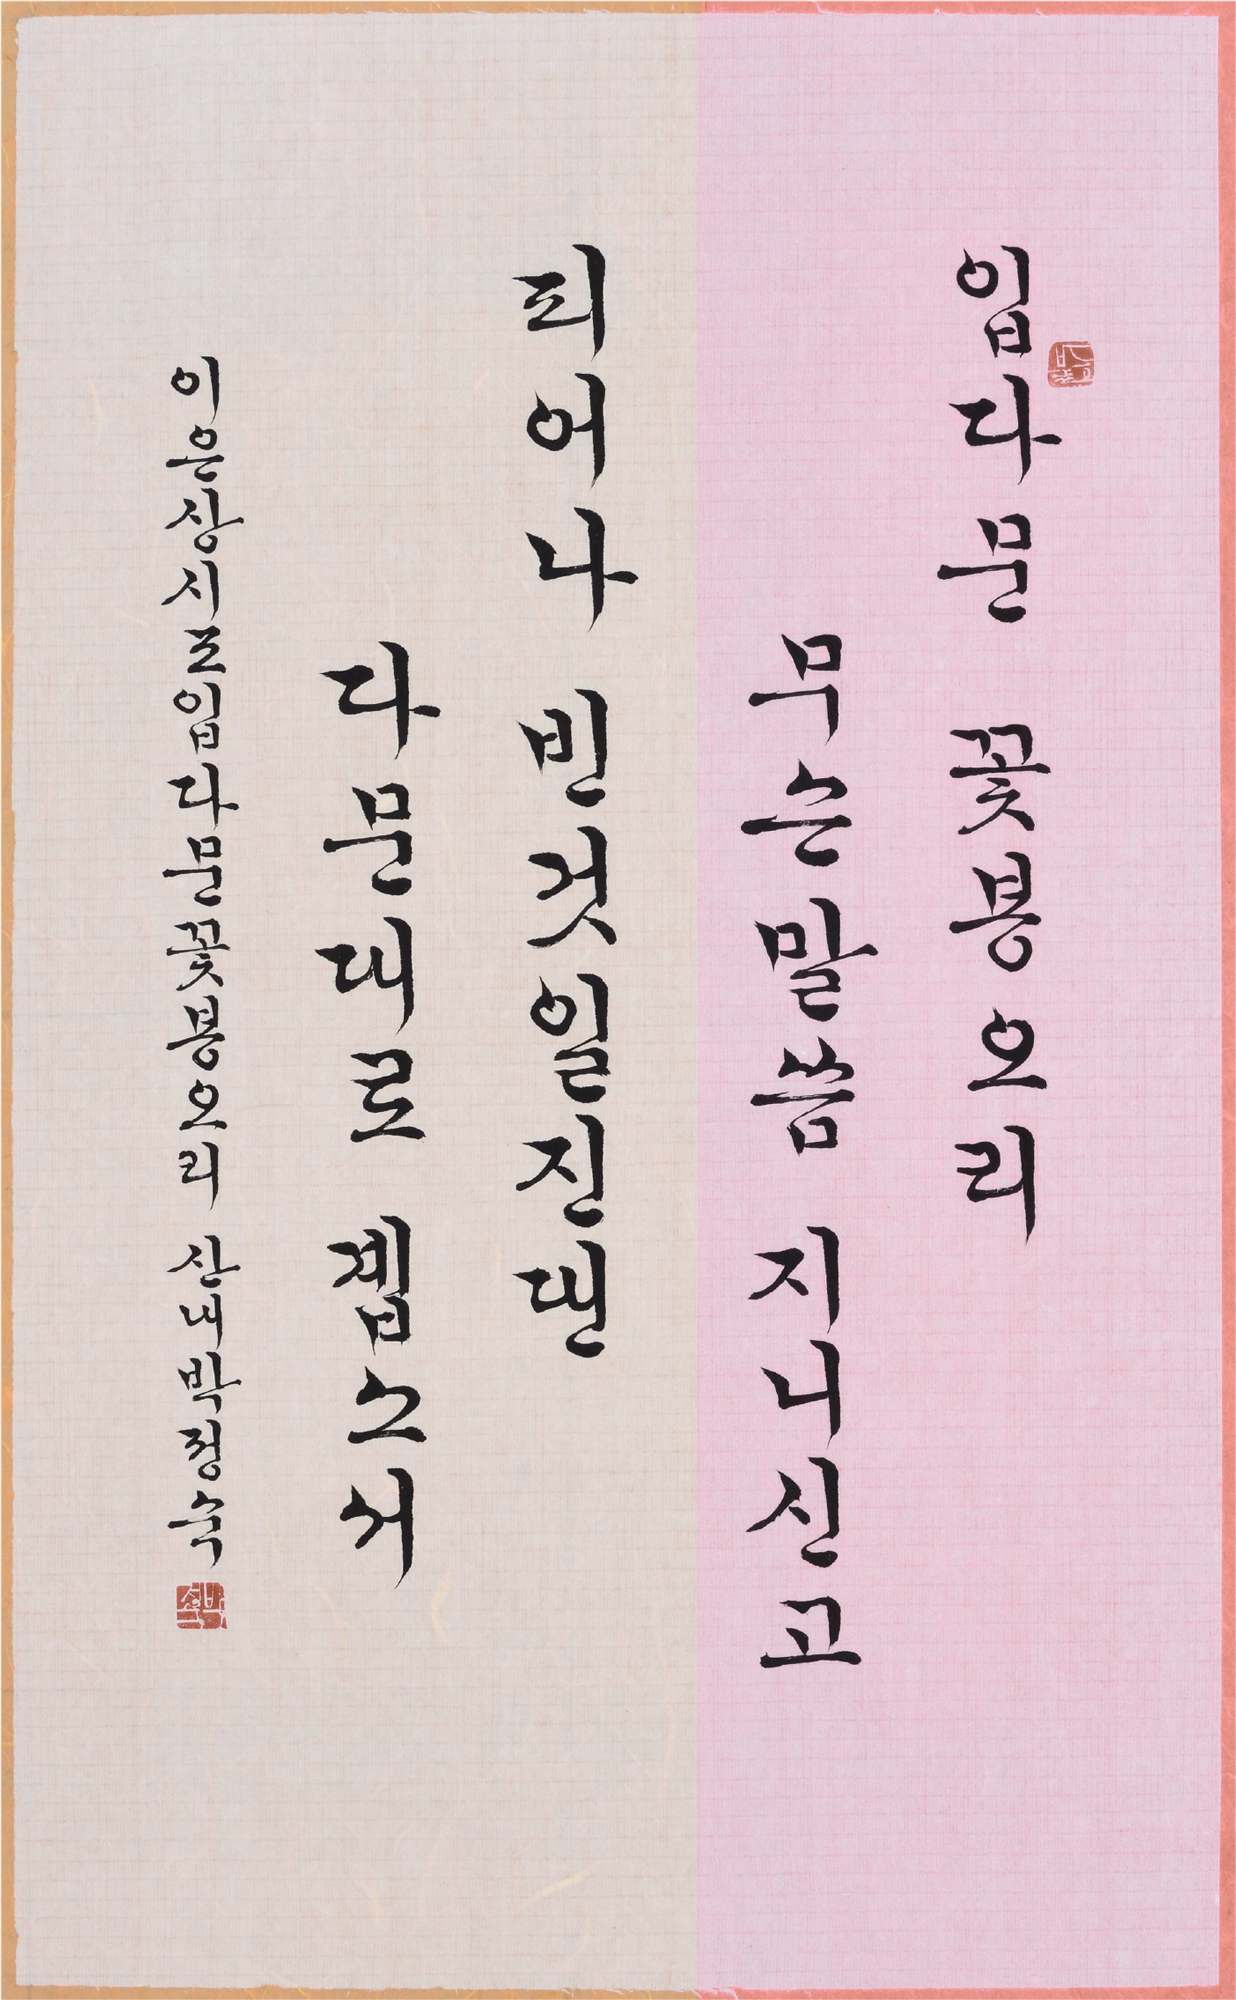 입다문 꽃봉오리
무슨말씀 지니신고
피어나 빈것일진댄
다문대로 곕소서
이은상시조입다문꽃봉오리 산내박정숙